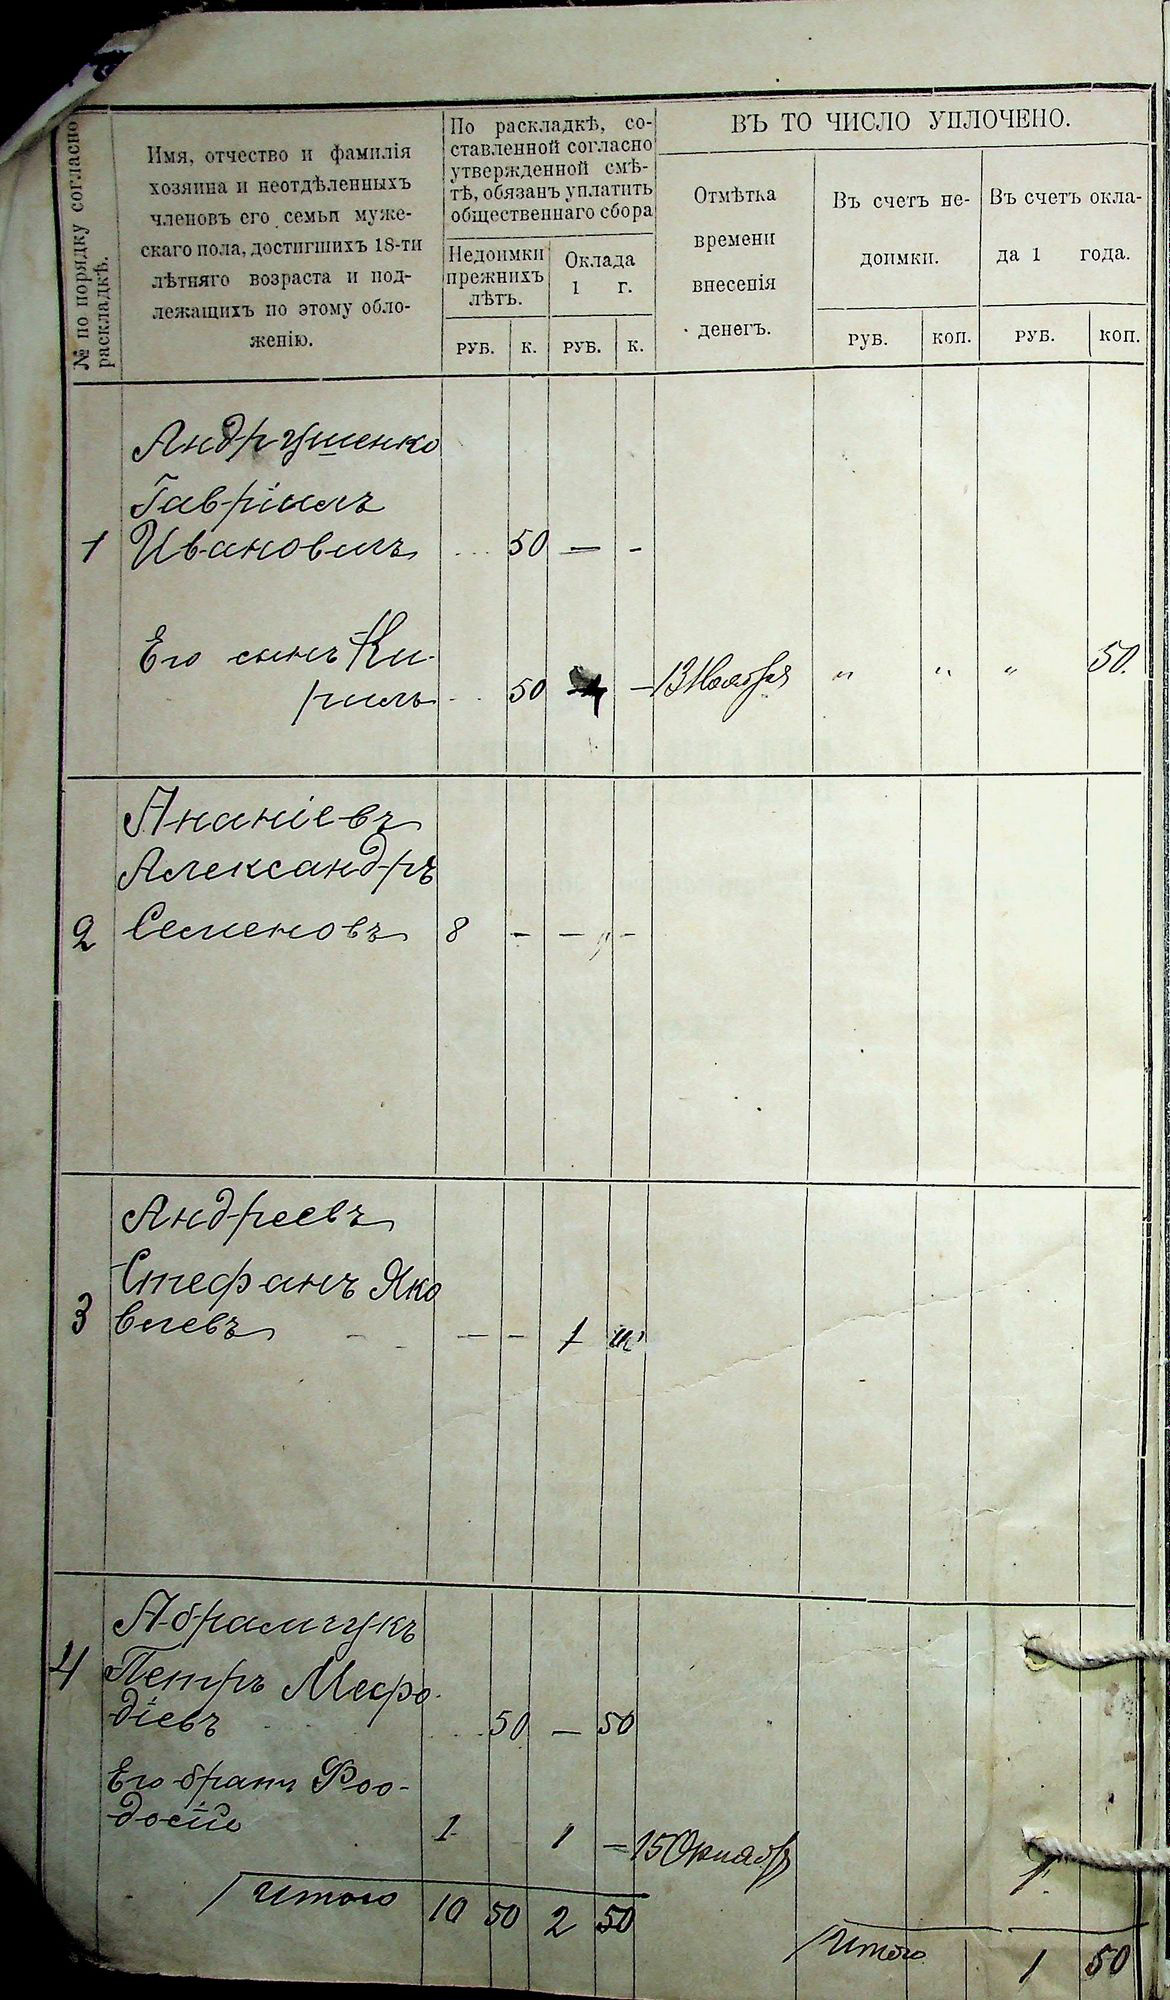 № по порядку согласно
раскладкѣ.
Имя, отчество и фамилія
хозяина и неотдѣленныхъ
членовъ его семьи муже-
скаго пола, достигшихъ 18-ти
лѣтняго возраста и под-
лежащихъ по этому обло-
женію.
По раскладкѣ, со-
ставленной согласно
утвержденной смѣ-
тѣ, обязанъ уплатить
общественнаго сбора
Недоимки
прежнихъ
лѣтъ.
Оклада
1 г.
РУБ. К. РУБ. К.
ВЪ ТО ЧИСЛО УПЛОЧЕНО.
Отмѣтка
времени
внесенія
денегъ.
Въ счетъ не-
доимки.
Въ счетъ окла-
да 1 года.
РУБ. КОП. РУБ. КОП.
Андрушенко
Гавріилъ
1 Ивановичъ ... 50 — -
Его сынъ Ки-
рилъ .. 50 — 13 Ноября " " " 50.
Ананіевъ
Александръ
2 Семеновъ 8 - — -
Андреевъ
Стефанъ Яко
3 влевъ — - 1
Абрамчукъ
4 Петръ Мефо-
діевъ ... 50 — 50
Его братъ Фео-
досій 1 1 — 15 Октября 1.
Итого 10 50 2 50
Итого 1 50